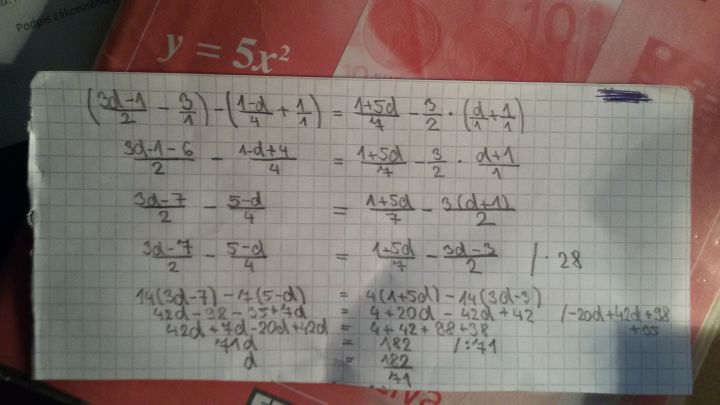 Podpis zákonného
y = 5x²
10
(3d-1/2 - 3/1) - (1-d/4 + 1/1) = 1+5d/7 - 3/2 · (d/1 + 1/1)
3d-1-6/2 - 1-d+4/4 = 1+5d/7 - 3/2 · d+1/1
3d-7/2 - 5-d/4 = 1+5d/7 - 3(d+1)/2
3d-7/2 - 5-d/4 = 1+5d/7 - 3d-3/2 /· 28
14(3d-7) - 7(5-d) = 4(1+5d) - 14(3d-3)
42d - 98 - 35+7d = 4+20d - 42d + 42 /-20d+42d+98
+35
42d + 7d-20d+42d = 4+42+98+35
71d = 182 /:71
d = 182/71